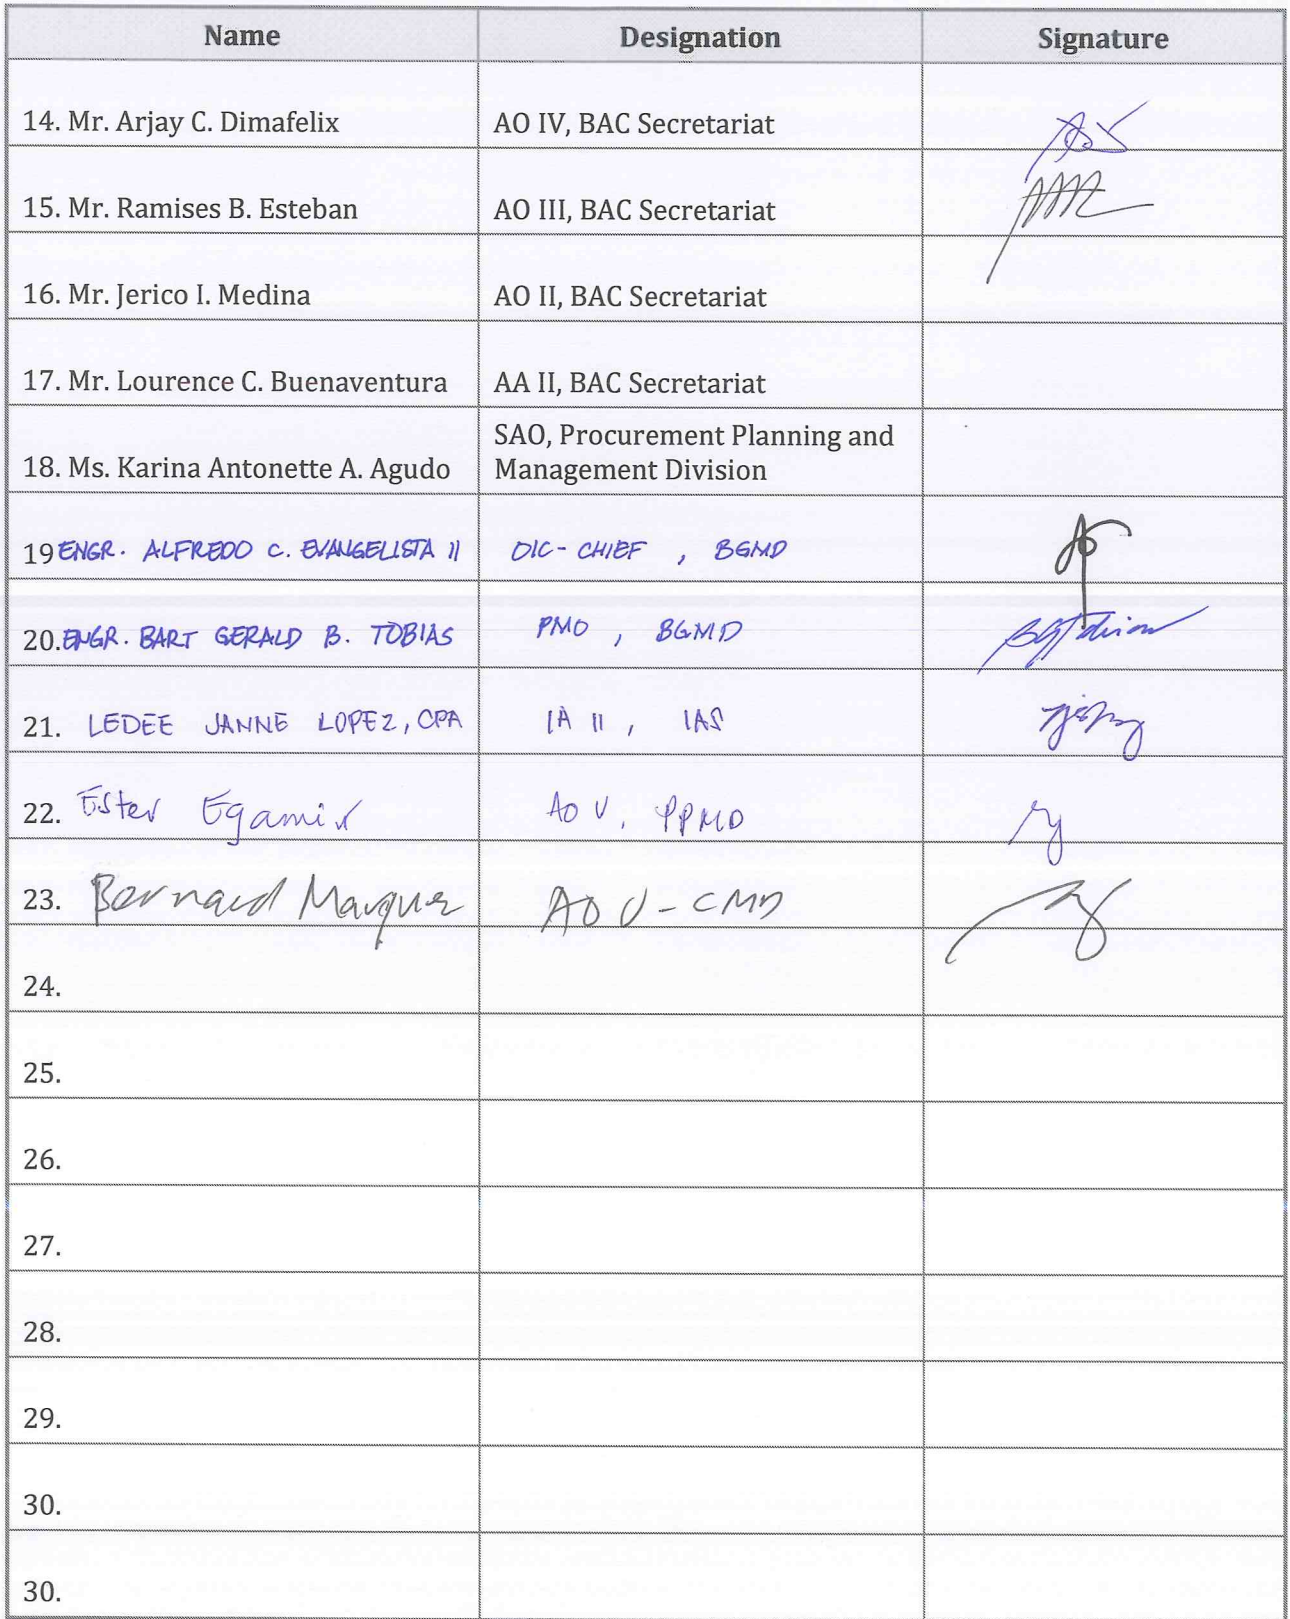 Name Designation Signature
14. Mr. Arjay C. Dimafelix AO IV, BAC Secretariat
15. Mr. Ramises B. Esteban AO III, BAC Secretariat
16. Mr. Jerico I. Medina AO II, BAC Secretariat
17. Mr. Lourence C. Buenaventura AA II, BAC Secretariat
18. Ms. Karina Antonette A. Agudo SAO, Procurement Planning and
Management Division
19 ENGR. ALFREDO C. EVANGELISTA II OIC-CHIEF, BGMD
20. ENGR. BART GERALD B. TOBIAS PMO, BGMD
21. LEDEE JANNE LOPEZ, CPA IA II, IAS
22. Ester Egamin AO V, PPMD
23. Bernard Marquez AO V - CMD
24.
25.
26.
27.
28.
29.
30.
30.